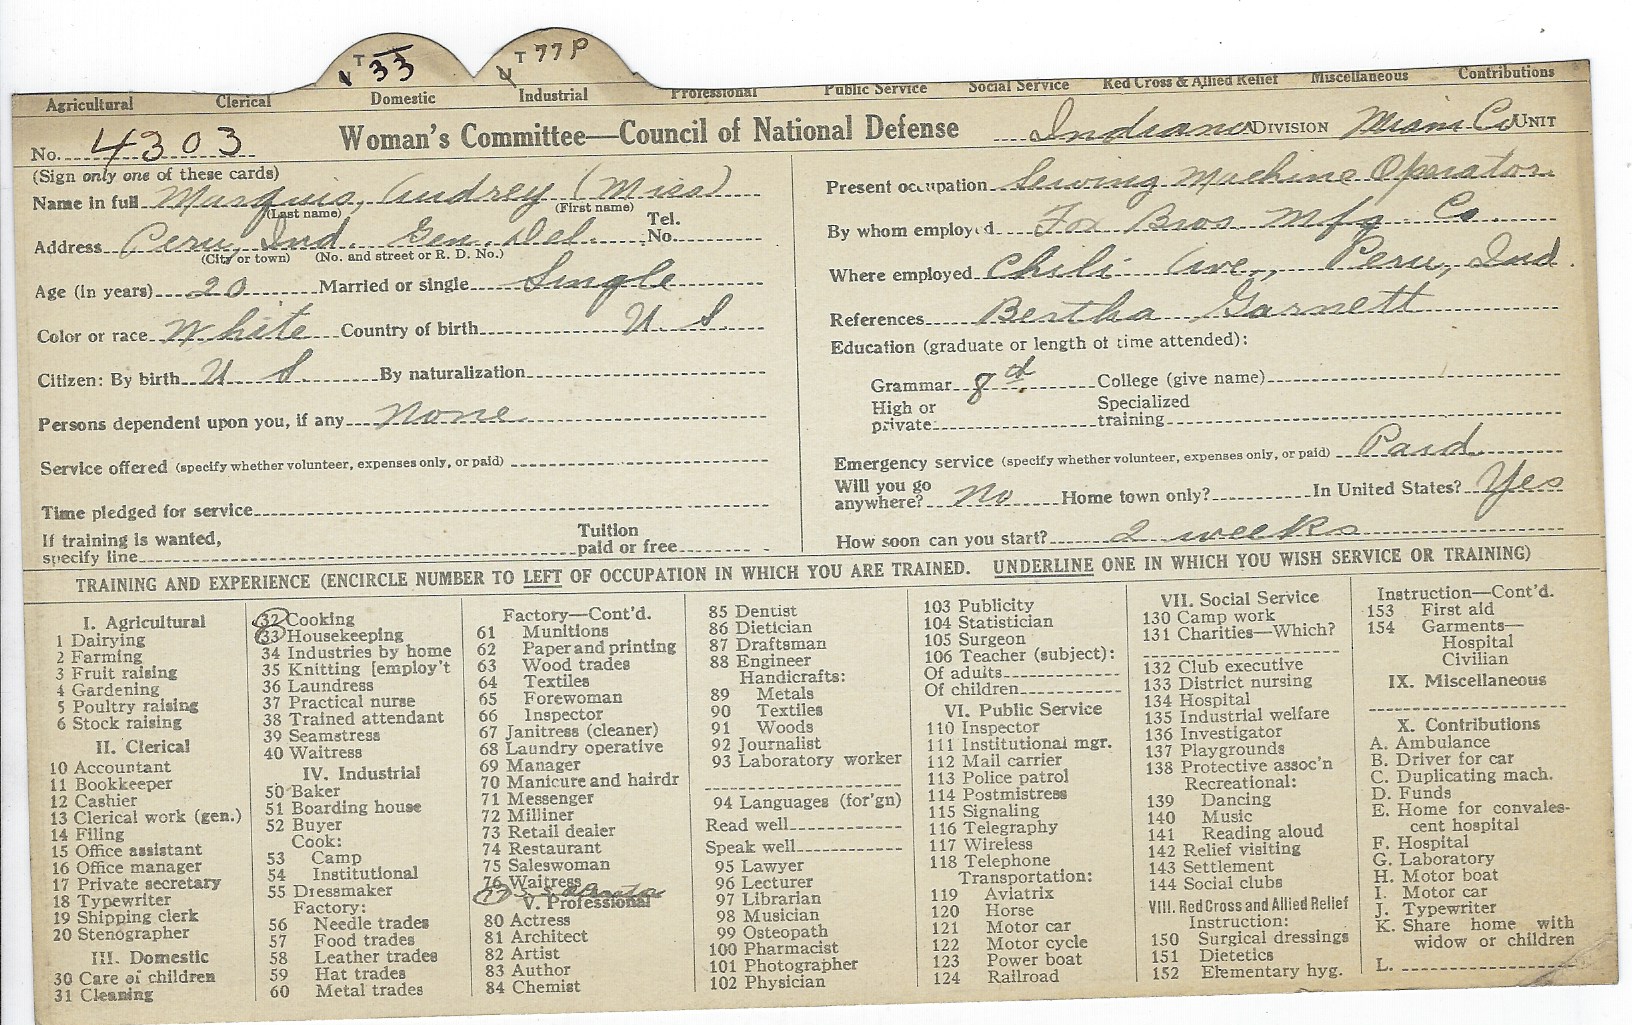 T 33
T 77 P
Agricultural Clerical Domestic Industrial Professional Public Service Social Service Red Cross & Allied Relief Miscellaneous Contributions
No. 4303 Woman's Committee—Council of National Defense Indiana DIVISION Miami Co UNIT
(Sign only one of these cards)
Name in full Marquis, Audrey (Miss)
(Last name) (First name)
Address Peru, Ind. Gen. Del. Tel. No.
(City or town) (No. and street or R. D. No.)
Age (in years) 20 Married or single Single
Color or race White Country of birth U. S.
Citizen: By birth U S. By naturalization
Persons dependent upon you, if any None
Service offered (specify whether volunteer, expenses only, or paid)
Time pledged for service
If training is wanted, specify line Tuition paid or free
Present occupation Sewing Machine Operator.
By whom employed Fox Bros Mfg Co.
Where employed Chili Ave., Peru, Ind.
References Bertha Garnett
Education (graduate or length of time attended):
Grammar 8th College (give name)
High or private Specialized training
Emergency service (specify whether volunteer, expenses only, or paid) Paid
Will you go anywhere? No Home town only? In United States? Yes
How soon can you start? 2 weeks
TRAINING AND EXPERIENCE (ENCIRCLE NUMBER TO LEFT OF OCCUPATION IN WHICH YOU ARE TRAINED. UNDERLINE ONE IN WHICH YOU WISH SERVICE OR TRAINING)
I. Agricultural
1 Dairying
2 Farming
3 Fruit raising
4 Gardening
5 Poultry raising
6 Stock raising
II. Clerical
10 Accountant
11 Bookkeeper
12 Cashier
13 Clerical work (gen.)
14 Filing
15 Office assistant
16 Office manager
17 Private secretary
18 Typewriter
19 Shipping clerk
20 Stenographer
III. Domestic
30 Care of children
31 Cleaning
32 Cooking
33 Housekeeping
34 Industries by home
35 Knitting [employ't
36 Laundress
37 Practical nurse
38 Trained attendant
39 Seamstress
40 Waitress
IV. Industrial
50 Baker
51 Boarding house
52 Buyer
Cook:
53 Camp
54 Institutional
55 Dressmaker
Factory:
56 Needle trades
57 Food trades
58 Leather trades
59 Hat trades
60 Metal trades
Factory—Cont'd.
61 Munitions
62 Paper and printing
63 Wood trades
64 Textiles
65 Forewoman
66 Inspector
67 Janitress (cleaner)
68 Laundry operative
69 Manager
70 Manicure and hairdr
71 Messenger
72 Milliner
73 Retail dealer
74 Restaurant
75 Saleswoman
76 Waitress
77
V. Professional
80 Actress
81 Architect
82 Artist
83 Author
84 Chemist
85 Dentist
86 Dietician
87 Draftsman
88 Engineer
Handicrafts:
89 Metals
90 Textiles
91 Woods
92 Journalist
93 Laboratory worker
94 Languages (for'gn)
Read well
Speak well
95 Lawyer
96 Lecturer
97 Librarian
98 Musician
99 Osteopath
100 Pharmacist
101 Photographer
102 Physician
103 Publicity
104 Statistician
105 Surgeon
106 Teacher (subject):
Of adults
Of children
VI. Public Service
110 Inspector
111 Institutional mgr.
112 Mail carrier
113 Police patrol
114 Postmistress
115 Signaling
116 Telegraphy
117 Wireless
118 Telephone
Transportation:
119 Aviatrix
120 Horse
121 Motor car
122 Motor cycle
123 Power boat
124 Railroad
VII. Social Service
130 Camp work
131 Charities—Which?
132 Club executive
133 District nursing
134 Hospital
135 Industrial welfare
136 Investigator
137 Playgrounds
138 Protective assoc'n
Recreational:
139 Dancing
140 Music
141 Reading aloud
142 Relief visiting
143 Settlement
144 Social clubs
VIII. Red Cross and Allied Relief
Instruction:
150 Surgical dressings
151 Dietetics
152 Elementary hyg.
Instruction—Cont'd.
153 First aid
154 Garments—
Hospital
Civilian
IX. Miscellaneous
X. Contributions
A. Ambulance
B. Driver for car
C. Duplicating mach.
D. Funds
E. Home for convales-
cent hospital
F. Hospital
G. Laboratory
H. Motor boat
I. Motor car
J. Typewriter
K. Share home with
widow or children
L.